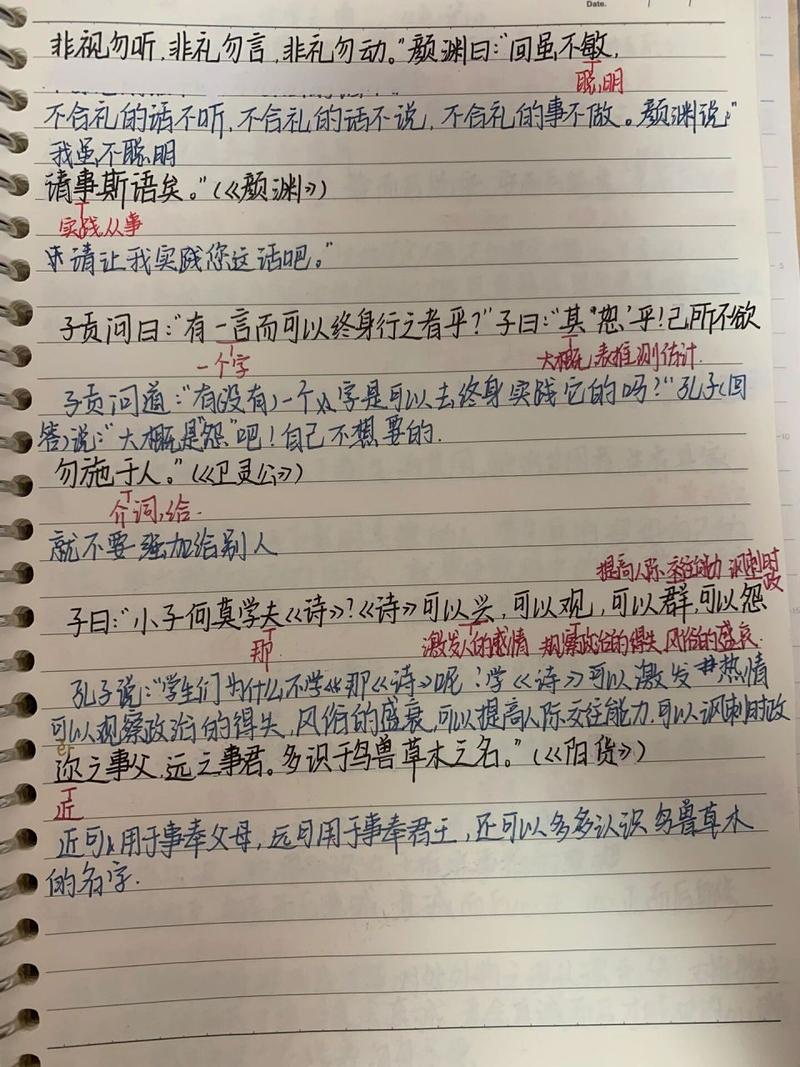 Date.
非视勿听,非礼勿言,非礼勿动。"颜渊曰:"回虽不敏,
聪明
不合礼的话不听,不合礼的话不说,不合礼的事不做。颜渊说:"
我虽不聪明
请事斯语矣。"(《颜渊》)
实践从事
请让我实践您这话吧。"
子贡问曰:"有一言而可以终身行之者乎?"子曰:"其'恕'乎!己所不欲
一个字 大概,表推测估计.
子贡问道:"有(没有)一个字是可以去终身实践它的吗?"孔子(回
答)说:"大概是"恕"吧!自己不想要的.
勿施于人。"(《卫灵公》)
介词,给.
就不要强加给别人
提高人际交往能力 讽刺时政
子曰:"小子何莫学夫《诗》?《诗》可以兴,可以观,可以群,可以怨
那 激发人的感情 观察政治的得失,风俗的盛衰.
孔子说:"学生们为什么不学那《诗》呢?学《诗》可以激发热情
可以观察政治的得失,风俗的盛衰,可以提高人际交往能力,可以讽刺时政
er
迩之事父,远之事君。多识于鸟兽草木之名。"(《阳货》)
近
近可以用于事奉父母,远可用于事奉君王,还可以多多认识鸟兽草木
的名字.